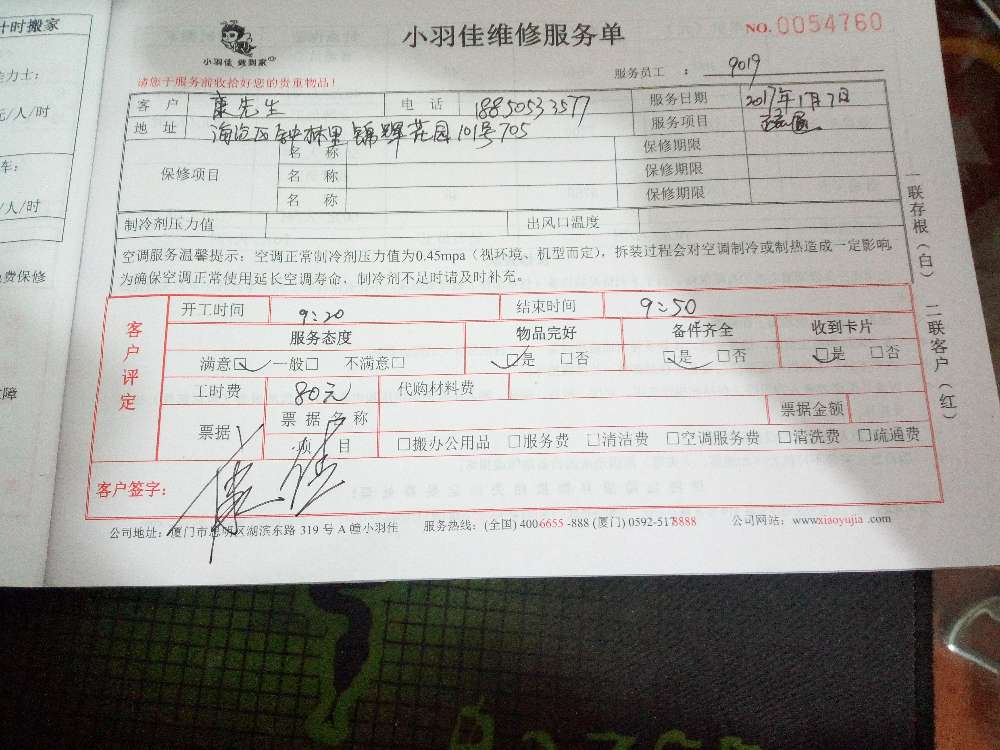 计时搬家
小羽佳 做到家
小羽佳维修服务单
NO. 0054760
请您于服务前收拾好您的贵重物品!
服务员工 : 9019
客 户 康先生 电 话 18850533577 服务日期 2017年1月7日
地 址 海沧区 钟林里 锦辉花园 101号705 服务项目
保修项目 名 称 保修期限
名 称 保修期限
名 称 保修期限
制冷剂压力值 出风口温度
空调服务温馨提示: 空调正常制冷剂压力值为0.45mpa (视环境、机型而定), 拆装过程会对空调制冷或制热造成一定影响
为确保空调正常使用延长空调寿命, 制冷剂不足时请及时补充。
一联存根(白) 二联客户(红)
客户评定
开工时间 9:20 结束时间 9:50
服务态度 物品完好 备件齐全 收到卡片
满意☑ 一般□ 不满意□ ☑是 □否 ☑是 □否 ☑是 □否
工时费 80元 代购材料费
票据 票据名称 票据金额
项 目 □搬办公用品 □服务费 □清洁费 □空调服务费 □清洗费 □疏通费
客户签字:
公司地址: 厦门市思明区湖滨东路 319 号 A 幢小羽佳 服务热线: (全国) 4006655 -888 (厦门) 0592-5178888 公司网站: www.xiaoyujia .com
力士:
元/人/时
车:
/人/时
免费保修
障